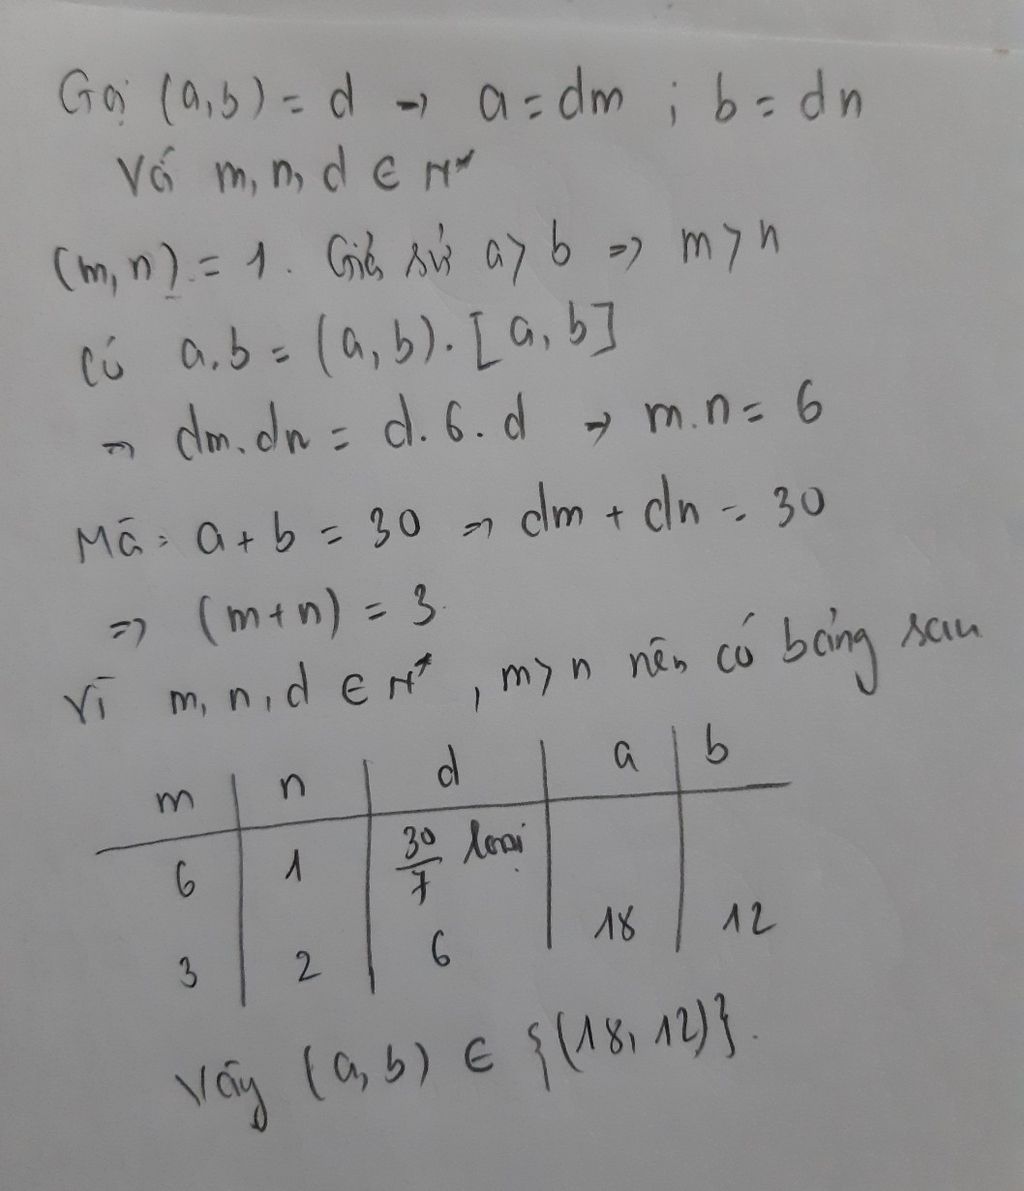 Gọi (a,b) = d → a = dm ; b = dn
Với m, n, d ∈ N*
(m, n) = 1. Giả sử a > b => m > n
Có a.b = (a, b). [a, b]
=> dm.dn = d.6.d → m.n = 6
Mà: a + b = 30 => dm + dn = 30
=> (m+n) = 3.
Vì m, n, d ∈ N*, m > n nên có bảng sau
m | n | d | a | b
6 | 1 | 30/7 loại
3 | 2 | 6 | 18 | 12
Vậy (a, b) ∈ {(18, 12)}.